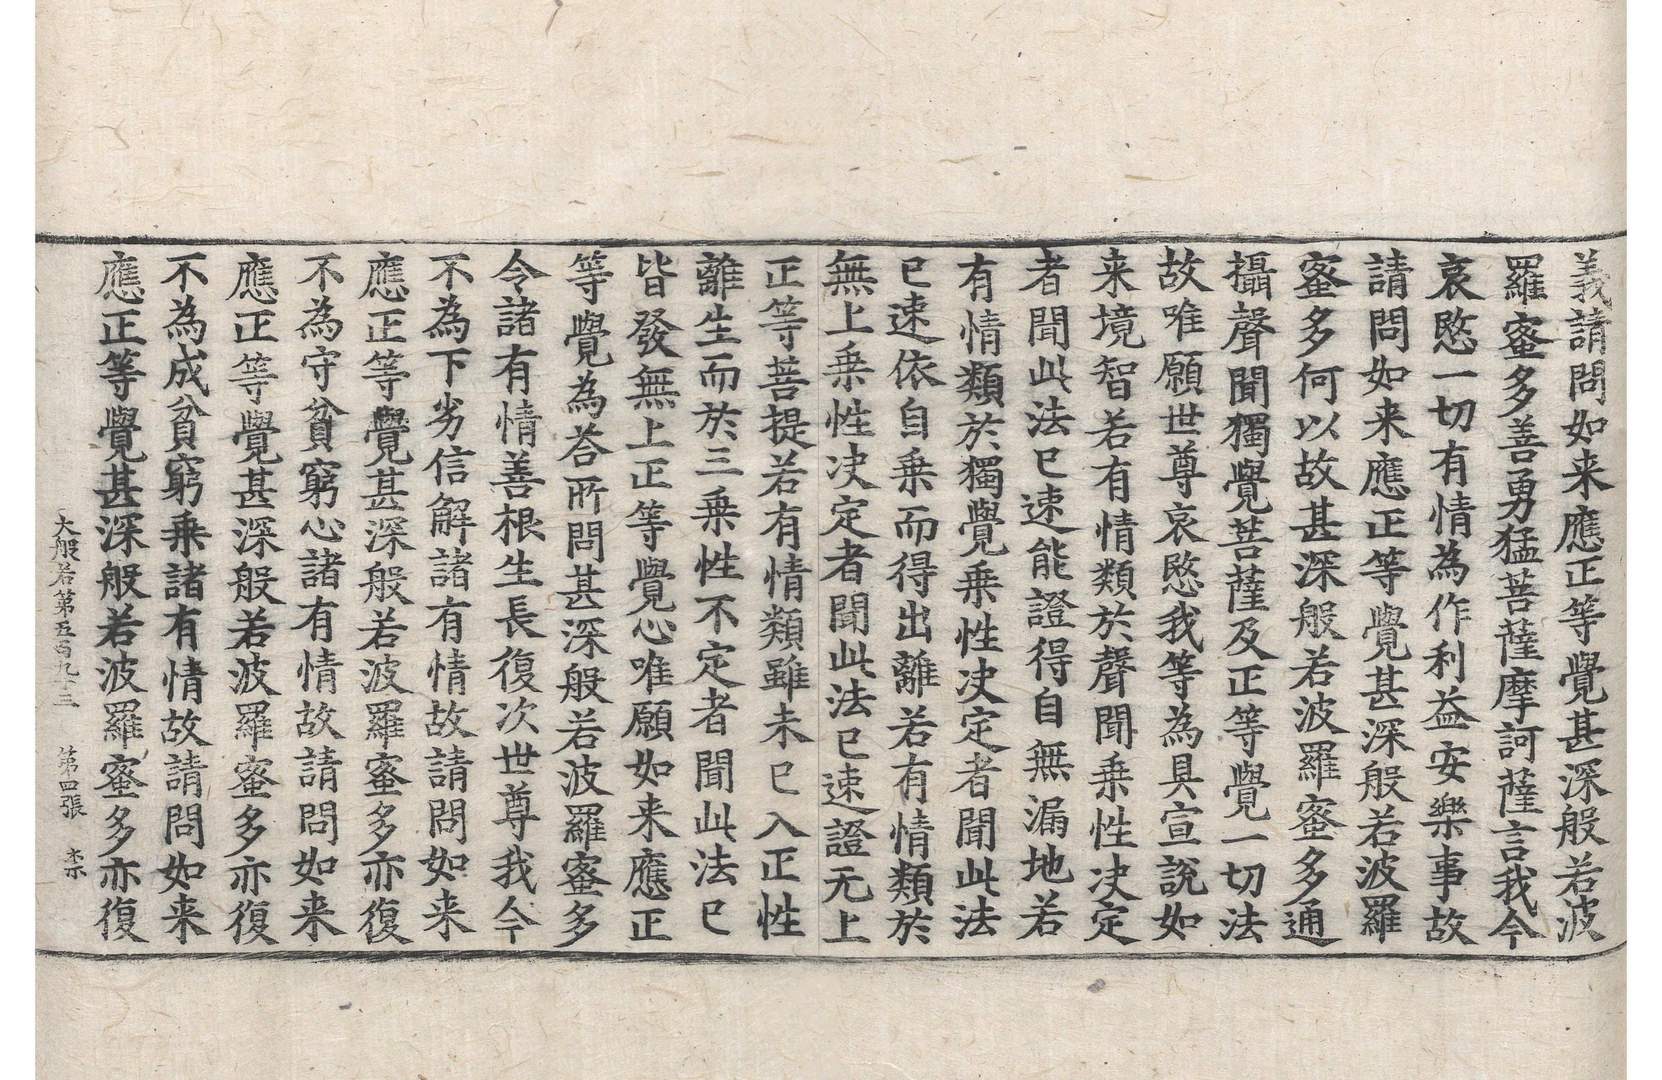 義請問如来應正等覺甚深般若波
羅蜜多善勇猛菩薩摩訶薩言我今
哀愍一切有情為作利益安樂事故
請問如来應正等覺甚深般若波羅
蜜多何以故甚深般若波羅蜜多通
攝聲聞獨覺菩薩及正等覺一切法
故唯願世尊哀愍我等為具宣說如
来境智若有情類於聲聞乗性决定
者聞此法已速能證得自無漏地若
有情類於獨覺乗性决定者聞此法
已速依自乗而得出離若有情類於
無上乗性决定者聞此法已速證无上
正等菩提若有情類雖未已入正性
離生而於三乗性不定者聞此法已
皆發無上正等覺心唯願如来應正
等覺為荅所問甚深般若波羅蜜多
令諸有情善根生長復次世尊我今
不為下劣信解諸有情故請問如来
應正等覺甚深般若波羅蜜多亦復
不為守貧窮心諸有情故請問如来
應正等覺甚深般若波羅蜜多亦復
不為成貧窮乗諸有情故請問如来
應正等覺甚深般若波羅蜜多亦復
大般若第五百九十三 第四張 柰